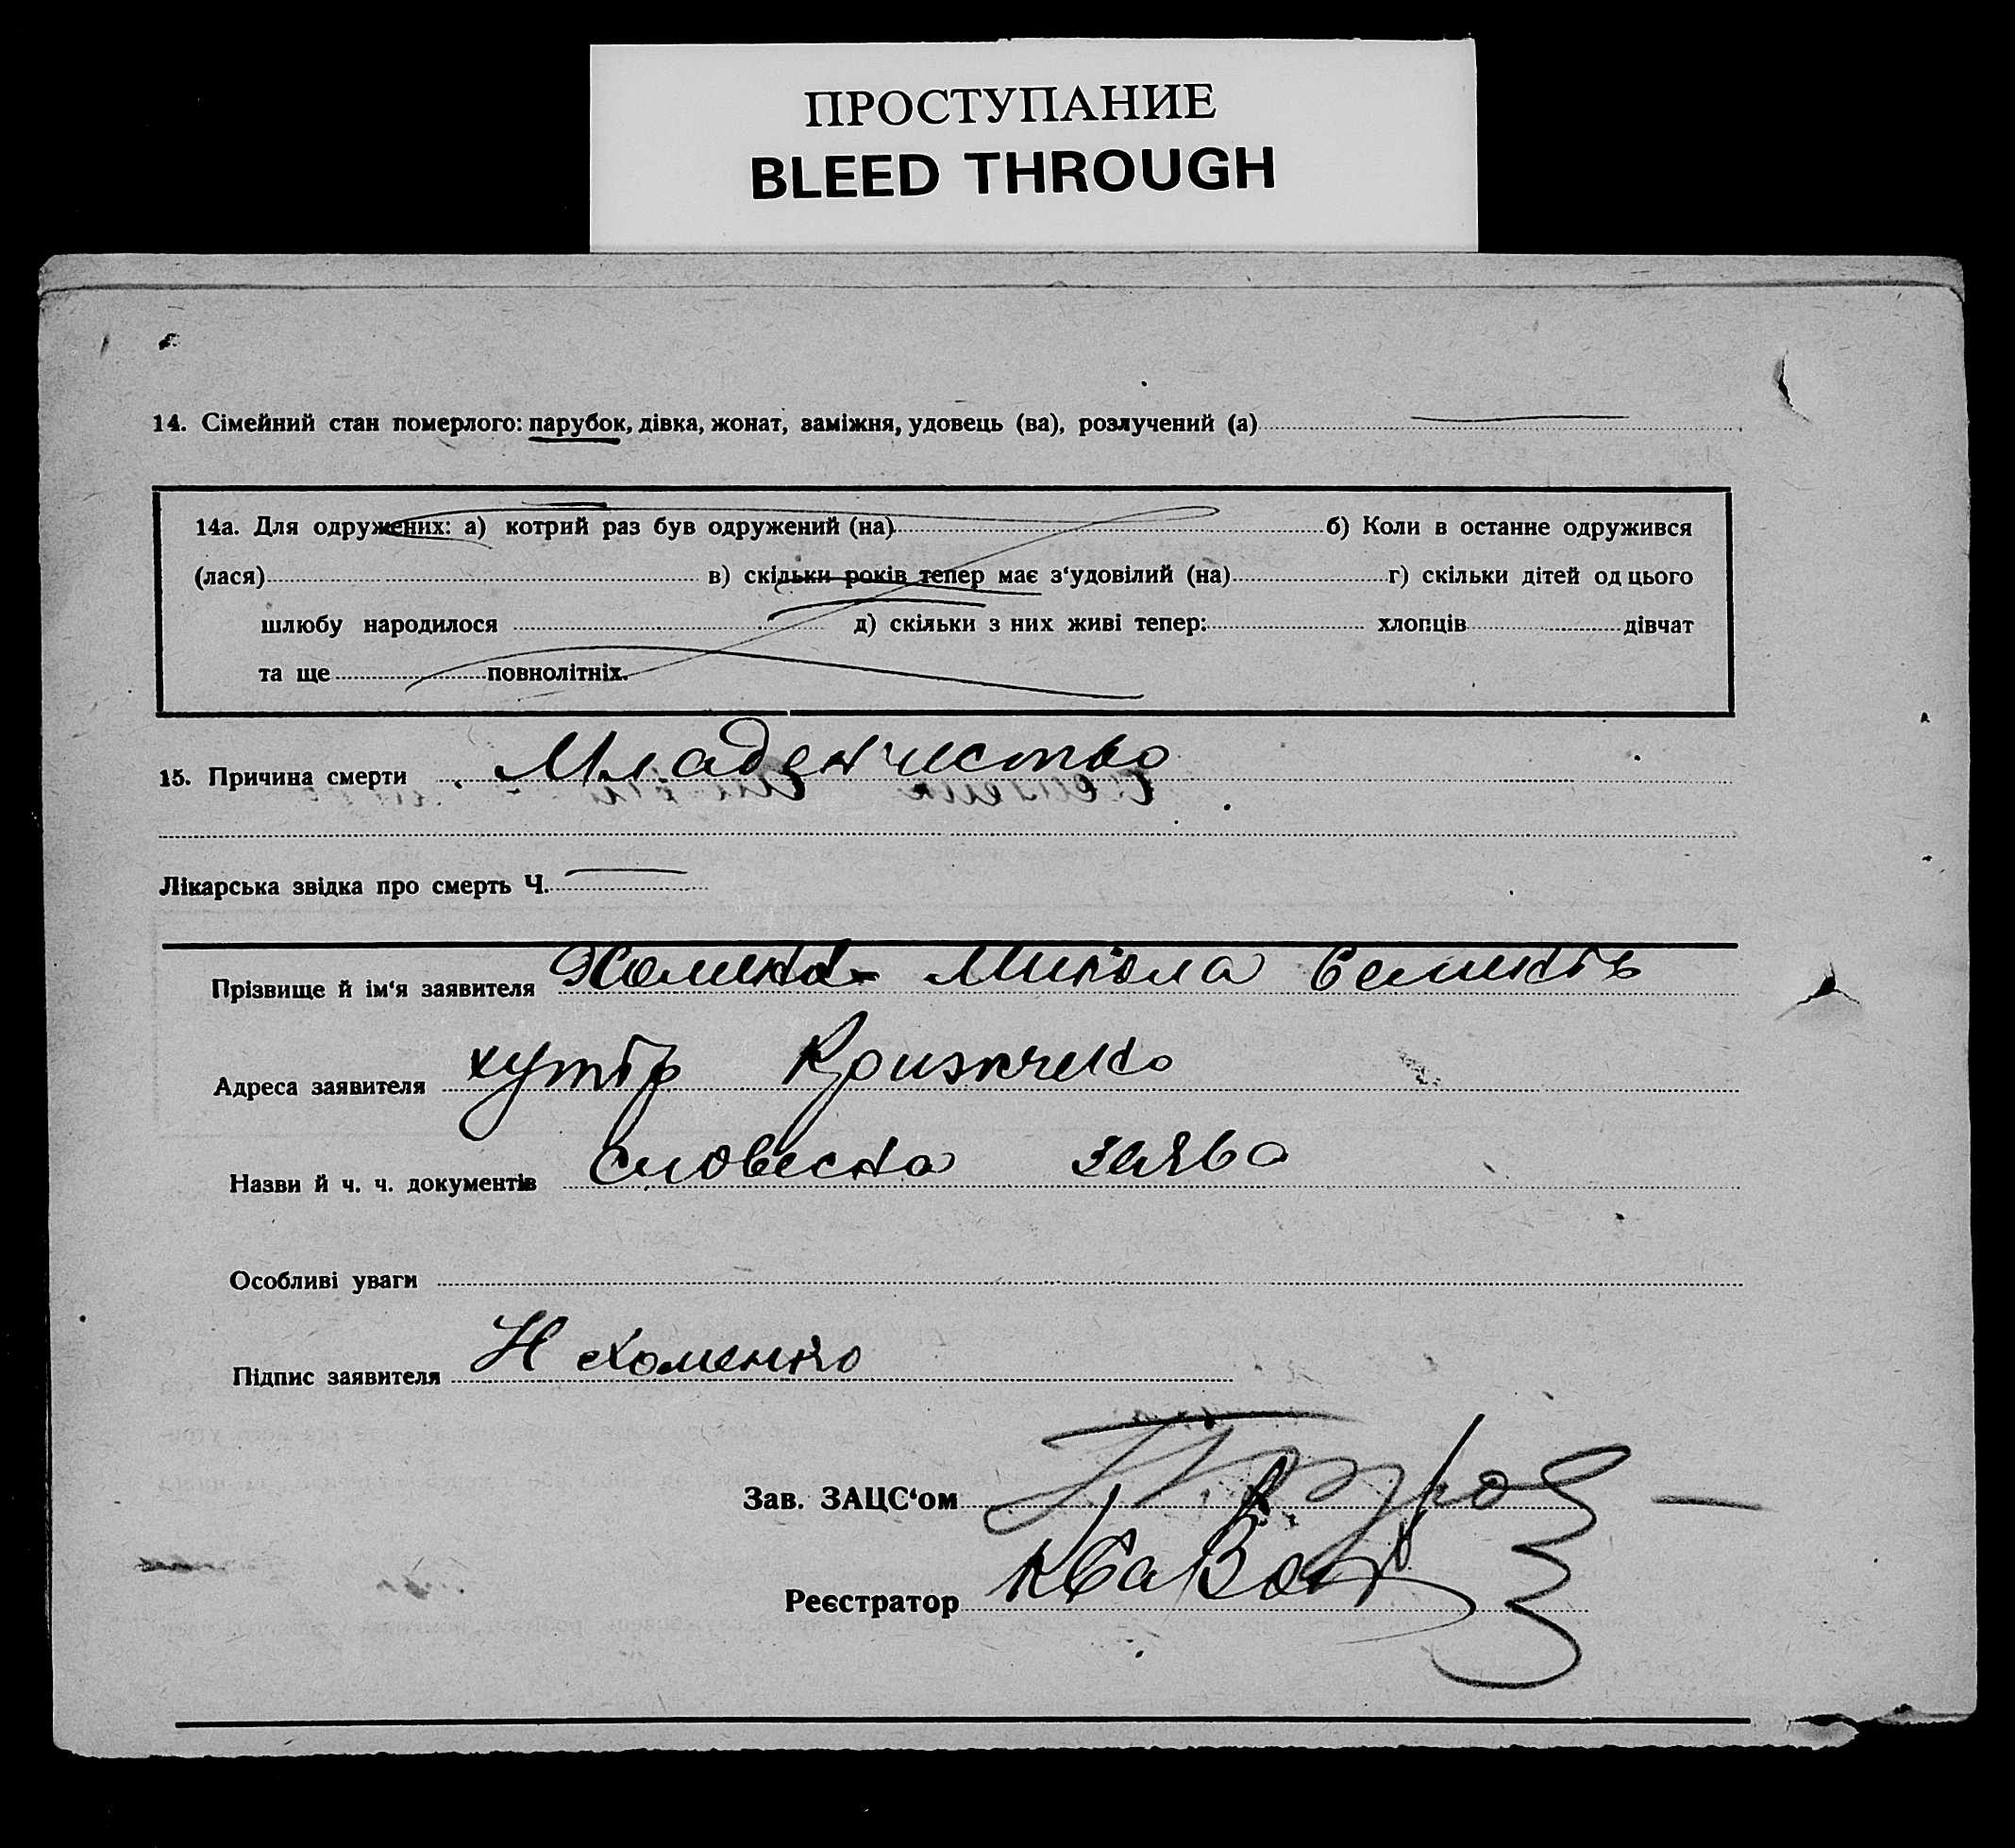 ПРОСТУПАНИЕ
BLEED THROUGH
14. Сімейний стан померлого: парубок, дівка, жонат, заміжня, удовець (ва), розлучений (а)
14а. Для одружених: а) котрий раз був одружений (на) б) Коли в останне одружився
(лася) в) скільки років тепер має з‘удовілий (на) г) скільки дітей од цього
шлюбу народилося д) скільки з них живі тепер: хлопців дівчат
та ще повнолітніх.
15. Причина смерти Младенчество
Лікарська звідка про смерть Ч.
Прізвище й ім‘я заявителя Хоменко Микола Семенов
Адреса заявителя хутір
Назви й ч. ч. документів Словесна заява
Особливі уваги
Підпис заявителя Н Хоменко
Зав. ЗАЦС‘ом
Реєстратор